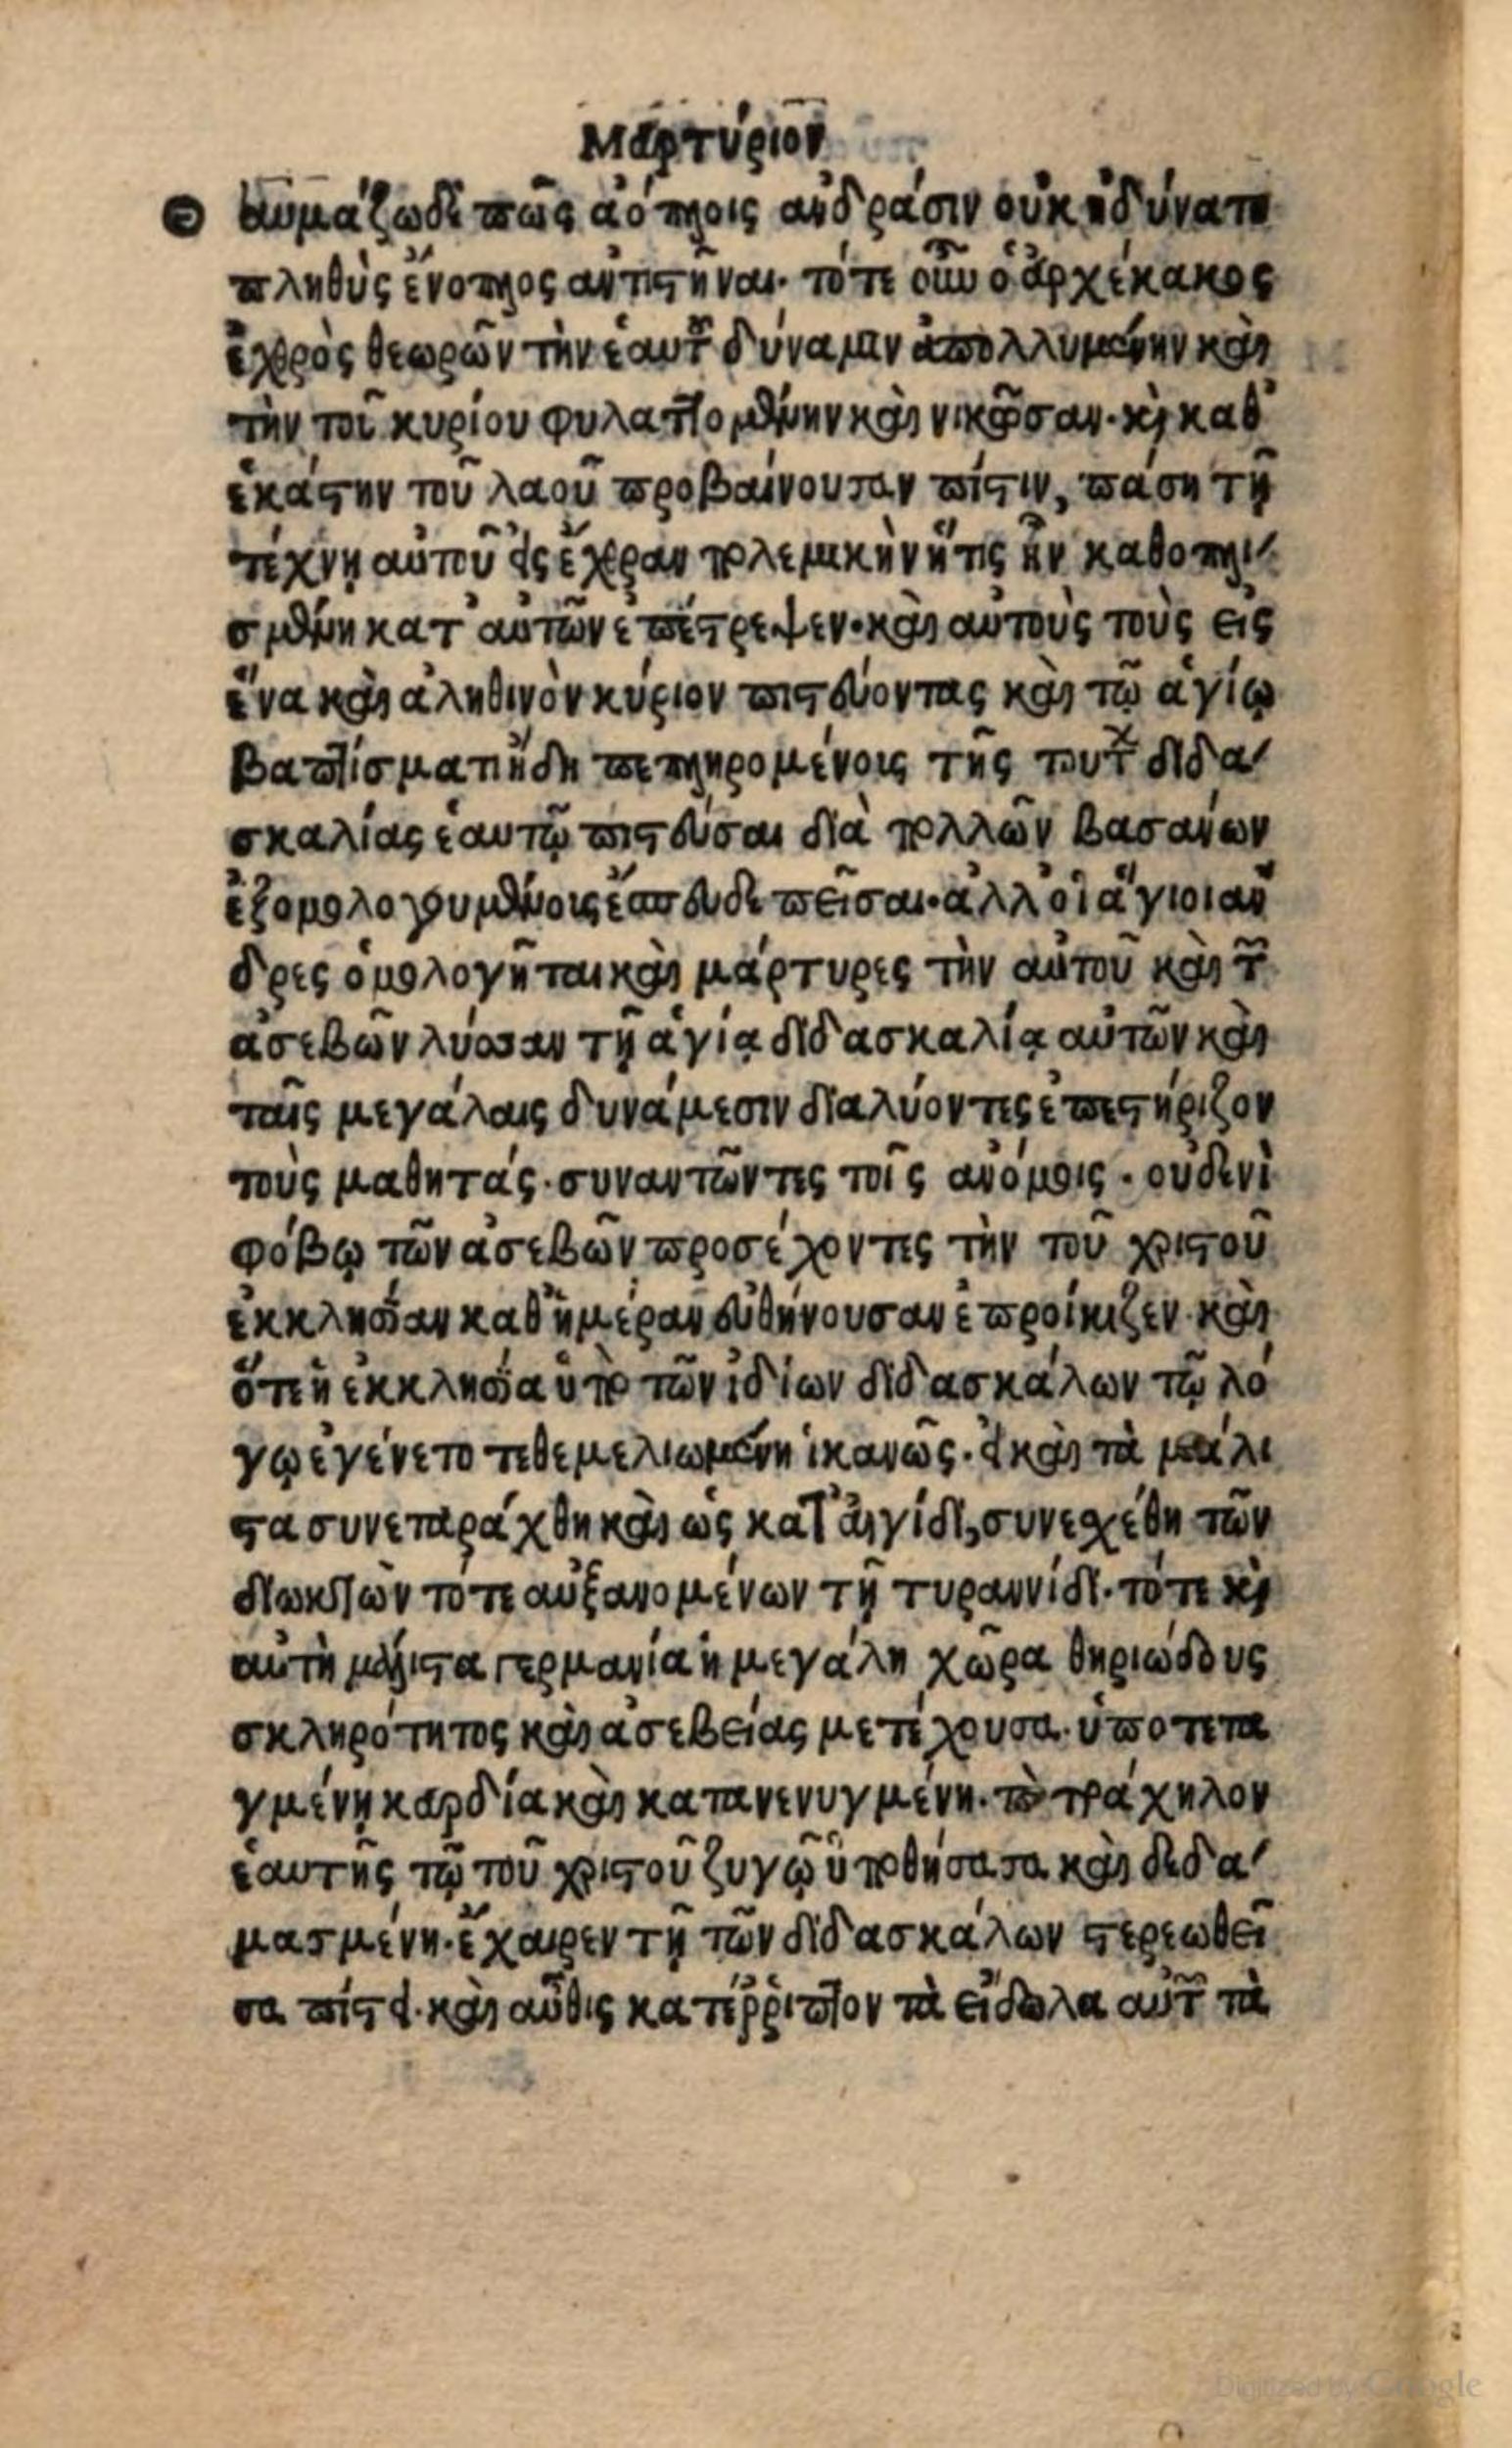 Μαρτύριον
Θ αυμάζω δὲ πῶς ἀόπλοις ἀνδράσιν οὐκ ἠδύνατο
πληθὺς ἔνοπλος ἀντιστῆναι· τότε οὖν ὁ ἀρχέκακος
ἐχθρὸς θεωρῶν τὴν ἑαυτοῦ δύναμιν ἀπολλυμένην καὶ
τὴν τοῦ κυρίου φυλαττομένην καὶ νικῶσαν· καὶ καθ'
ἑκάστην τοῦ λαοῦ προβαίνουσαν πίστιν, πάσῃ τῇ
τέχνῃ αὐτοῦ εἰς ἔχθραν πολεμικὴν ἥτις ἦν καθοπλι-
σμένη κατ' αὐτῶν ἐπέστρεψεν· καὶ αὐτοὺς τοὺς εἰς
ἕνα καὶ ἀληθινὸν κύριον πιστεύοντας καὶ τῷ ἁγίῳ
βαπτίσματι ἤδη πεπληρομένοις τῆς τούτων διδα-
σκαλίας ἑαυτῷ πιστεῦσαι διὰ πολλῶν βασάνων
ἐξομολογουμένοις ἔσπευδε πεῖσαι· ἀλλ' οἱ ἅγιοι ἄν
δρες ὁμολογῆται καὶ μάρτυρες τὴν αὐτοῦ καὶ τῶν
ἀσεβῶν λύσσαν τῇ ἁγίᾳ διδασκαλίᾳ αὐτῶν καὶ
ταῖς μεγάλαις δυνάμεσιν διαλύοντες ἐπεστήριζον
τοὺς μαθητάς· συναντῶντες τοῖς ἀνόμοις · οὐδενὶ
φόβῳ τῶν ἀσεβῶν προσέχοντες τὴν τοῦ χριστοῦ
ἐκκλησίαν καθ' ἡμέραν εὐθήνουσαν ἐπροίκιζεν· καὶ
ὅτε ἡ ἐκκλησία ὑπὸ τῶν ἰδίων διδασκάλων τῷ λό
γῳ ἐγένετο τεθεμελιωμένη ἱκανῶς· εἰ καὶ τὰ μάλι
στα συνεταράχθη καὶ ὡς κατ' αἰγίδι, συνεχέθη τῶν
διωκτῶν τότε αὐξανομένων τῇ τυραννίδι· τότε καὶ
αὐτὴ μάλιστα γερμανία ἡ μεγάλη χῶρα θηριώδους
σκληρότητος καὶ ἀσεβείας μετέχουσα· ὑποτετα
γμένῃ καρδίᾳ καὶ κατανενυγμένη· τὸ τράχηλον
ἑαυτῆς τῷ τοῦ χριστοῦ ζυγῷ ὑποθήσασα καὶ δεδα-
μασμένη· ἔχαιρεν τῇ τῶν διδασκάλων στερεωθεῖ
σα πίστει· καὶ αὖθις κατέῤῥιπτον τὰ εἴδωλα αὐτῶν τὰ